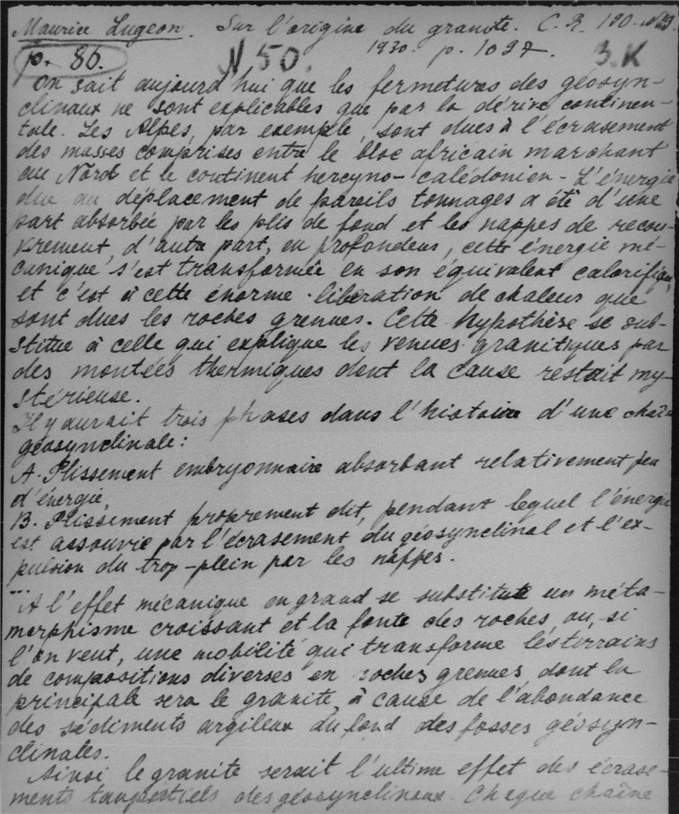 Maurice Lugeon. Sur l'origine du granite. C. R. 190. N 19.
1930. p. 1097.
p. 86. N 50. 3. K
On sait aujourd'hui que les fermetures des géosyn-
clinaux ne sont explicables que par la dérive continen-
tale. Les Alpes, par exemple, sont dues à l'écrasement
des masses comprises entre le bloc africain marchant
au Nord et le continent hercyno-calédonien. L'énergie
due au déplacement de pareils tonnages a été d'une
part absorbée par les plis de fond et les nappes de recou-
vrement, d'autre part, en profondeur, cette énergie mé-
canique s'est transformée en son équivalent calorifique,
et c'est à cette énorme libération de chaleur que
sont dues les roches grenues. Cette hypothèse se sub-
stitue à celle qui explique les venues granitiques par
des montées thermiques dont la cause restait my-
stérieuse.
Il y aurait trois phases dans l'histoire d'une chaîne
géosynclinale:
A. Plissement embryonnaire absorbant relativement peu
d'énergie,
B. Plissement proprement dit, pendant lequel l'énergie
est assouvie par l'écrasement du géosynclinal et l'ex-
pulsion du trop-plein par les nappes.
...
A l'effet mécanique en grand se substitute un méta-
morphisme croissant et la fonte des roches, ou, si
l'on veut, une mobilité qui transforme les terrains
de compositions diverses en roches grenues dont la
principale sera le granite, à cause de l'abondance
des sédiments argileux du fond des fosses géosyn-
clinales.
Ainsi le granite serait l'ultime effet des écrase-
ments tangentiels des géosynclinaux. Chaque chaîne